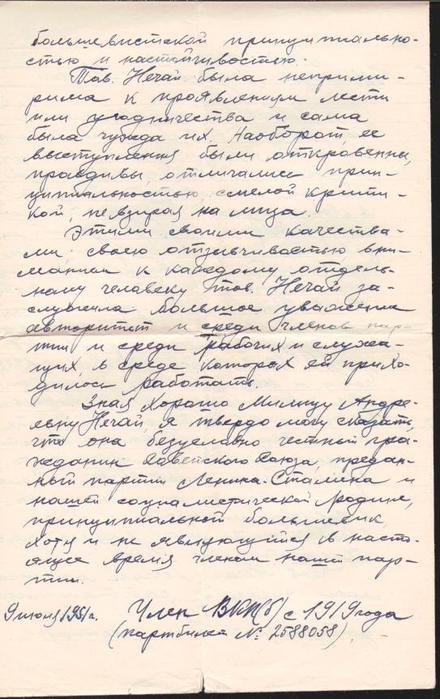 большевистской принципиально-
стью и настойчивостью.
Тов. Нечай была неприми-
рима к проявлениям лести
или угодничества и сама
была чужда их. Наоборот, ее
выступления были откровенны,
правдивы, отличались прин-
ципиальностью, смелой крити-
кой, невзирая на лица.
Этими своими качества-
ми, своею отзывчивостью вни-
манием к каждому отдель-
ному человеку тов. Нечай за-
служила большое уважение
авторитет и среди членов пар-
тии и среди рабочих и служа-
щих, в среде которых ей прихо-
дилось работать.
Зная хорошо Милицу Андре-
евну Нечай, я твердо могу сказать,
что она безусловно честный гра-
жданин Советского Союза, предан-
ный партии Ленина-Сталина и
нашей социалистической Родине,
принципиальной большевик,
хотя и не являющийся в насто-
ящее время членом нашей пар-
тии.
9 июля 1951 г. Член ВКП(б) с 1919 года
(партбилет № 2588058)